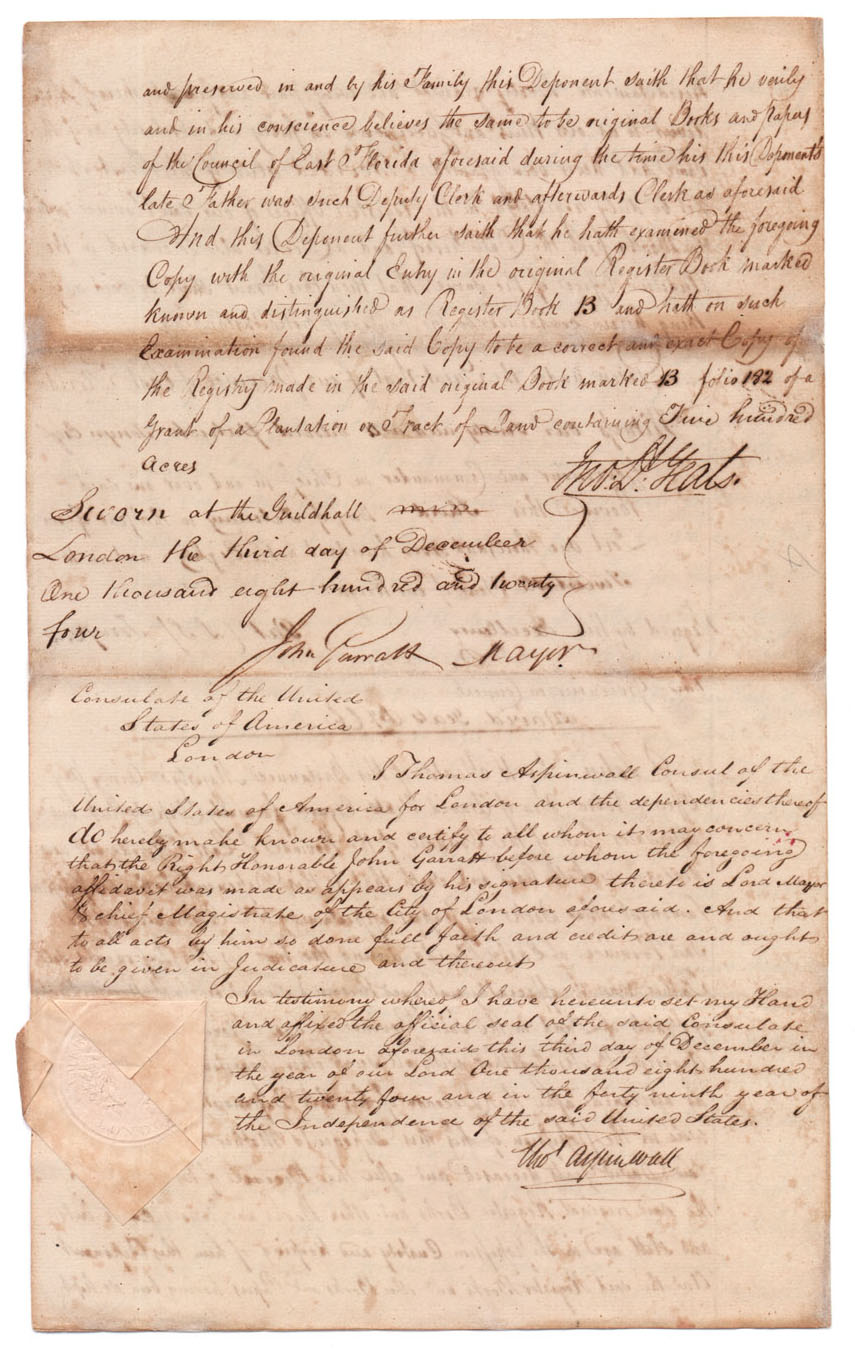 and preserved in and by his Family this Deponent saith that he verily
and in his conscience believes the same to be original Books and Papers
of the Council of East Florida aforesaid during the time his this Deponent's
late Father was such Deputy Clerk and afterwards Clerk as aforesaid
And this Deponent further saith that he hath examined the foregoing
Copy with the original Entry in the original Register Book marked
known and distinguished as Register Book B and hath on such
Examination found the said Copy to be a correct and exact Copy of
the Registry made in the said original Book marked B folio 182 of a
Grant of a Plantation or Tract of Land containing Five hundred
acres
Jno. Dd. Yeats.
Sworn at the Guildhall
London the third day of December
One thousand eight hundred and twenty
four
John Garratt Mayor
Consulate of the United
States of America
London
I Thomas Aspinwall Consul of the
United States of America for London and the dependencies thereof
do hereby make known and certify to all whom it may concern
that the Right Honorable John Garratt before whom the foregoing
affidavit was made as appears by his signature thereto is Lord Mayor
& chief Magistrate of the City of London aforesaid. And that
to all acts by him so done full faith and credit are and ought
to be given in Judicature and thereout
In testimony whereof I have hereunto set my Hand
and affixed the official seal of the said Consulate
in London aforesaid this third day of December in
the year of our Lord One thousand eight hundred
and twenty four and in the forty ninth year of
the Independence of the said United States.
Thos Aspinwall